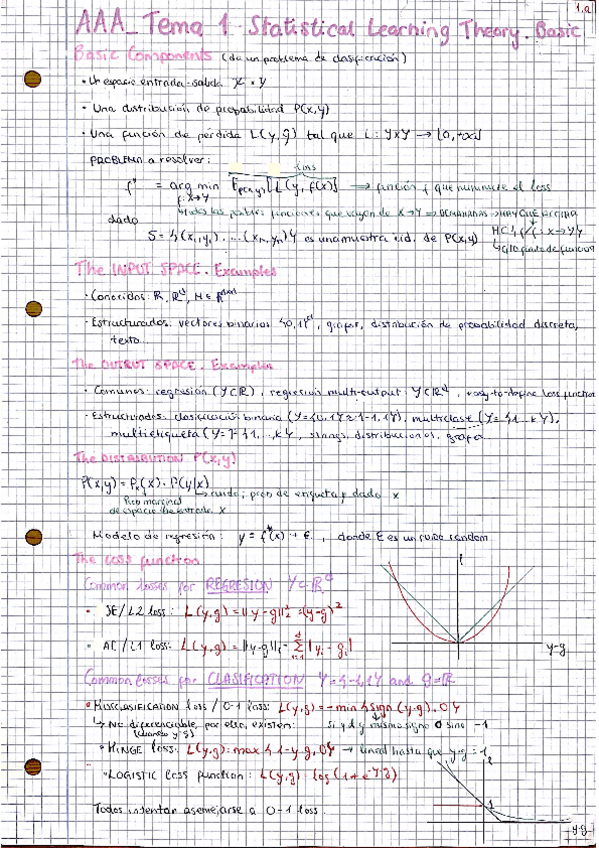 1.a
AAA_Tema 1 Statistical Learning Theory. Basic
Basic Components (de un problema de clasificación)
• Un espacio entrada-salida X × Y
• Una distribución de probabilidad P(x,y)
• Una función de pérdida L(y,ŷ) tal que L: Y×Y → [0,+∞]
PROBLEMA a resolver:
loss
f* = arg min E_P(x,y)[L(y, f(x))] → función f que minimice el loss
f: X→Y
dado
S = {(x₁,y₁), ... (xₙ,yₙ)} es una muestra i.i.d. de P(x,y)
The INPUT SPACE. Examples
• Conocidos: R, R^d
• Estructurados: vectores binarios, grafos, distribución de probabilidad discreta,
texto...
The OUTPUT SPACE. Examples
• Comunes: regresión (Y⊂R), regresión multi-output: Y⊂R^d, easy-to-define loss function
• Estructurados: clasificación binaria (Y={0,1} = {-1,1}), multiclase (Y={1...k}),
multietiqueta, strings, distribuciones, grafo
The DISTRIBUTION P(x,y)
P(x,y) = Pₓ(x) · P(y|x)
ruido; prob de etiqueta y dado x
Prob marginal
de espacio de entrada x
Modelo de regresión: y = f*(x) + ε, donde ε es un ruido random
The loss function
Common losses for REGRESION Y⊂R^d
• SE/L2 loss: L(y,g) = ||y-g||²₂ = (y-g)²
• AE/L1 loss: L(y,g) = ||y-g||₁ = Σ |yᵢ - gᵢ|
y-g
Common losses for CLASIFICATION Y={-1,1} and g=R
• MISCLASIFICATION loss / 0-1 loss: L(y,g) = -min {sign (y·g), 0}
↳ No diferenciable, por ello, existen: Si y y g mismo signo 0 sino -1
• HINGE loss: L(y,g) = max {1-y·g, 0} → lineal hasta que y·g = 1
• LOGISTIC loss function: L(y,g) = log(1+e^-y·g)
1
Todos intentan asemejarse a 0-1 loss.
y·g